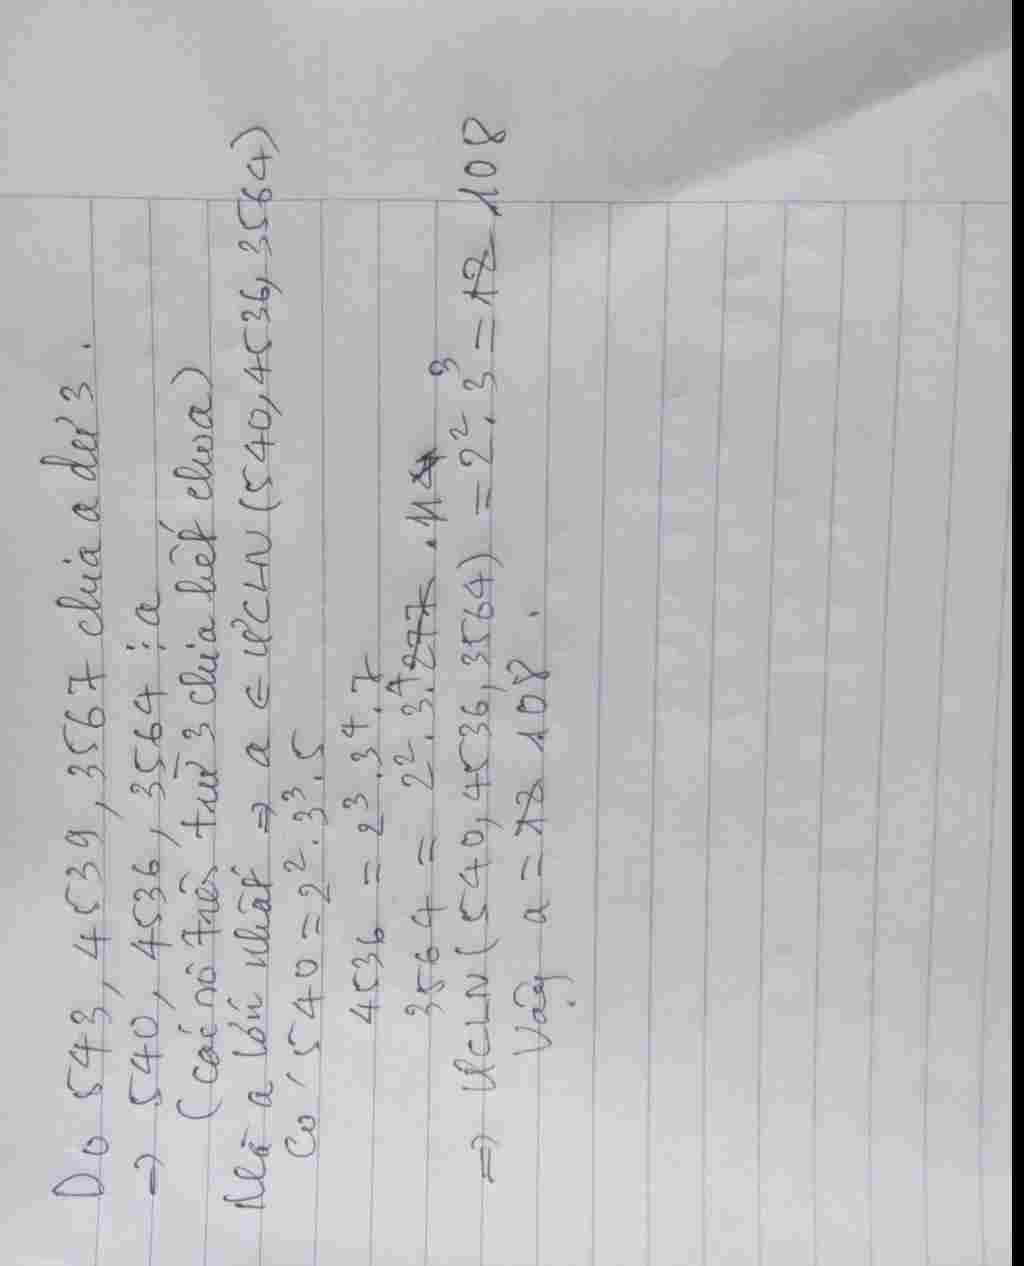 Do 543, 4539, 3567 chia a dư 3.
⇒ 540, 4536, 3564 ⋮ a
(các số trên trừ 3 chia hết cho a)
Mà a lớn nhất ⇒ a ∈ ƯCLN (540, 4536, 3564)
Có 540 = 2². 3³. 5
4536 = 2³. 3⁴. 7
3564 = 2². 3⁴. 11
⇒ ƯCLN (540, 4536, 3564) = 2². 3³ = 108
Vậy a = 108.